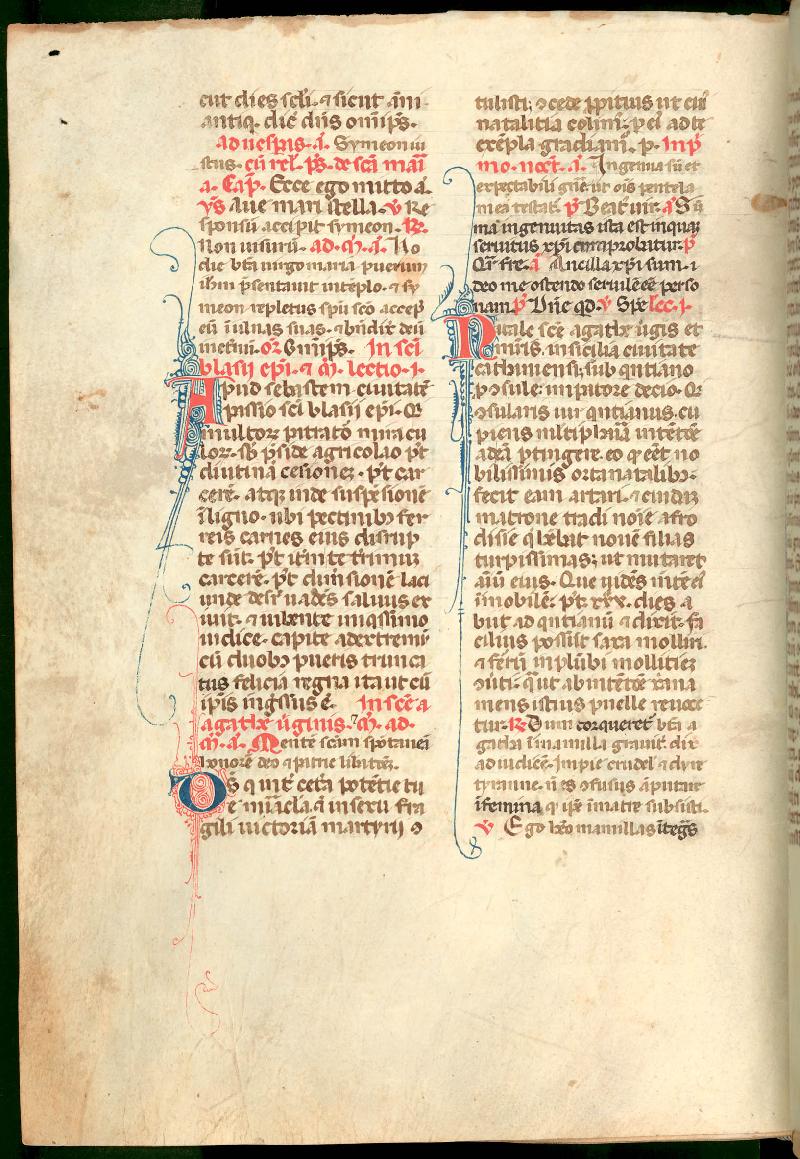 cut dies scłi· ⁊ sicut ãni
antiq̃. dic̃ dñs om̃ip̃s.
ad uesp̃is· ã. Symeon iu
stus· cũ rel̃. p̃s. de scã mar̃i
a. Cap̃. Ecce ego mitto ã.
ỹs Aue mari stella. v̾ Re
sponsũ accipit symeon. R̃.
Non uisurũ· ad· m̃. ã. Ho
die bt̃a uirgo maria puerum
ih̃m p̃sentauit in tẽplo. ⁊ sy
meon repletus sp̃u sc̃o accep̃
eũ ĩ ulnas suas· ⁊ bñdix̃ deũ
ĩ
or̃ Om̃ip̃s. In scĩ
blasii ep̃i. ⁊ m̃. lectio· i·
Apud sebastem ciuitatẽ
passio scĩ blasii ep̃i. Q
multorꝝ pr̃trato miracu
lorꝝ· sb̃ p̃side agricolao p̃t
diutinã cesionẽ· p̃t car
cerẽ· atqꝫ inde suspẽsionẽ
ĩ ligno· ubi pectinibꝫ fer
reis carnes eius disrup
te sũt· p̃t itm̃ tetrimuꝫ
carcerẽ. p̃t dimsionẽ laci
unde desr̃ uadẽs saluus ex
iuit· ⁊ iubente iniq̃ssimo
iudice· capite ad extremũ
cũ duobꝫ pueris trunca
tus felicia regna ita ut cũ
ip̃is ing̃ssus ẽ. In scẽ a
agathe ũginis. ⁊ m̃. ad·
m̃. ã. Mentẽ scãm spõtaneã
honorẽ deo ⁊ patrie libatẽ.
Ds̃ qui int̃ cet̃a potẽtie tu
e miracla ã in sexu fra
gili uictoriã martyrij ɔ
tulisti; ɔcede p̃pitius ut cui̾
natalitia colim̾; p̃ ei̾ ad te
exẽpla gradiam̃. p̃. In p̃
mo· noct̃. ã. Ingenua sũ et
expectabili gñẽ ut ois pentela
mea testat̃. p̃ Beat̃ uir. ã Sũ
ma ingenuitas ista est in qua
seruitus xp̃i cõprobatur. p̃
Qr̃e fre. ã Ancilla xp̃i sum· i
deo me ostendo seruilẽ eẽ perso
nam. p̃ Dñe qd̃. v̾ Spe lec. i·
Natale scẽ agathe ũgis et
m̃ris. in sicilia ciuitate
cathinensi; sub quĩtiano
ɔsule; imp̃atore decio. Q
ɔsularis uir quĩtianus. cu
piens ml̃tipharia intẽtõe
ad eã p̃tingere. eo q̃ eẽt no
bilissimis orta natalibꝫ·
fecit eam artari. ⁊ cuidaꝫ
matrone tradi noĩe afro
disie q̃ hẽbat nouẽ filias
turpissimas; ut mutaret
aĩũ eius. Que uidẽs mẽte ei̾
ĩmobilẽ. p̃t· xxx· dies a
biit ad quĩtianũ ⁊ dixit· fa
cilius possũt saxa molliri·
⁊ ferrũ in plũbi mollitieꝫ
ɔũti· q̃ ut ab intẽtõe xr̃iana
mens istius puelle reuoce
tur. R̃ Dum torqueret̃ bt̃a a
gatha ĩ mamilla grauit̾ dix̃
ad iudicẽ. impie crudel̃ ⁊ dire
tyranne. ñ es ɔfusus ãputare
ĩ femina q̃ ip̃e ĩ matre subsisti.
v̾ Ego hẽo mamillas ĩteg̃s